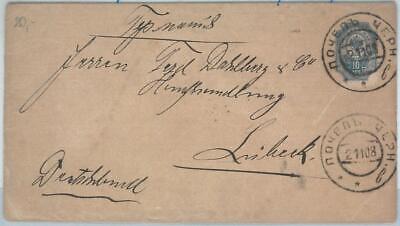 20,-
Германія
Herren Ferd. Dahlberg & Co
Lübeck.
Deutschland
ПОЧЕПЪ ЧЕРН.
10
ПОЧЕПЪ ЧЕРН.
2 11 08